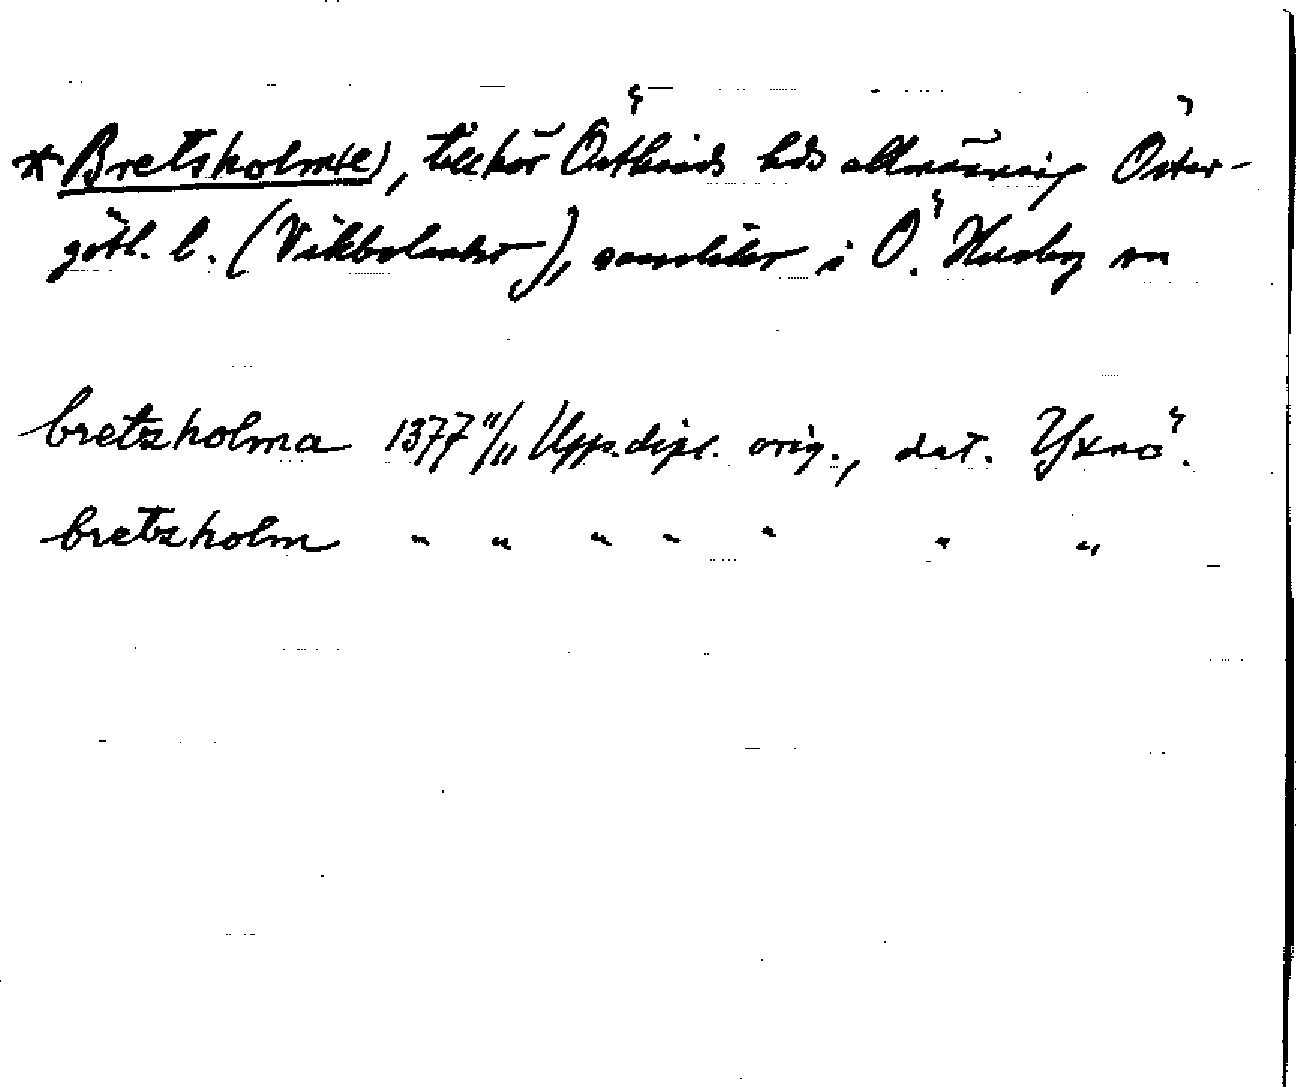 *Bretsholm(e), tillhör Östkinds hds allmänning Öster-
götl. l. (Vikbolandet), sannolikt i Ö. Husby sn
bretzholma 1377 11/11 Upps. dipl. orig., dat. Yxnö.
bretzholm " " " " " " "